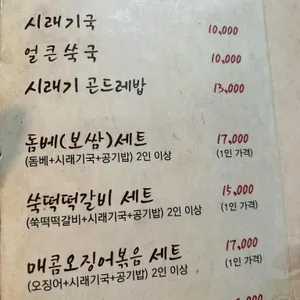 시래기국 10,000
얼큰쑥국 10,000
시래기 곤드레밥 13,000
돔베(보쌈)세트 17,000
(돔베+시래기국+공기밥) 2인 이상 (1인 가격)
쑥떡떡갈비 세트 15,000
(쑥떡떡갈비+시래기국+공기밥) 2인 이상 (1인 가격)
매콤오징어볶음 세트 17,000
(오징어+시래기국+공기밥) 2인 이상 (1인 가격)